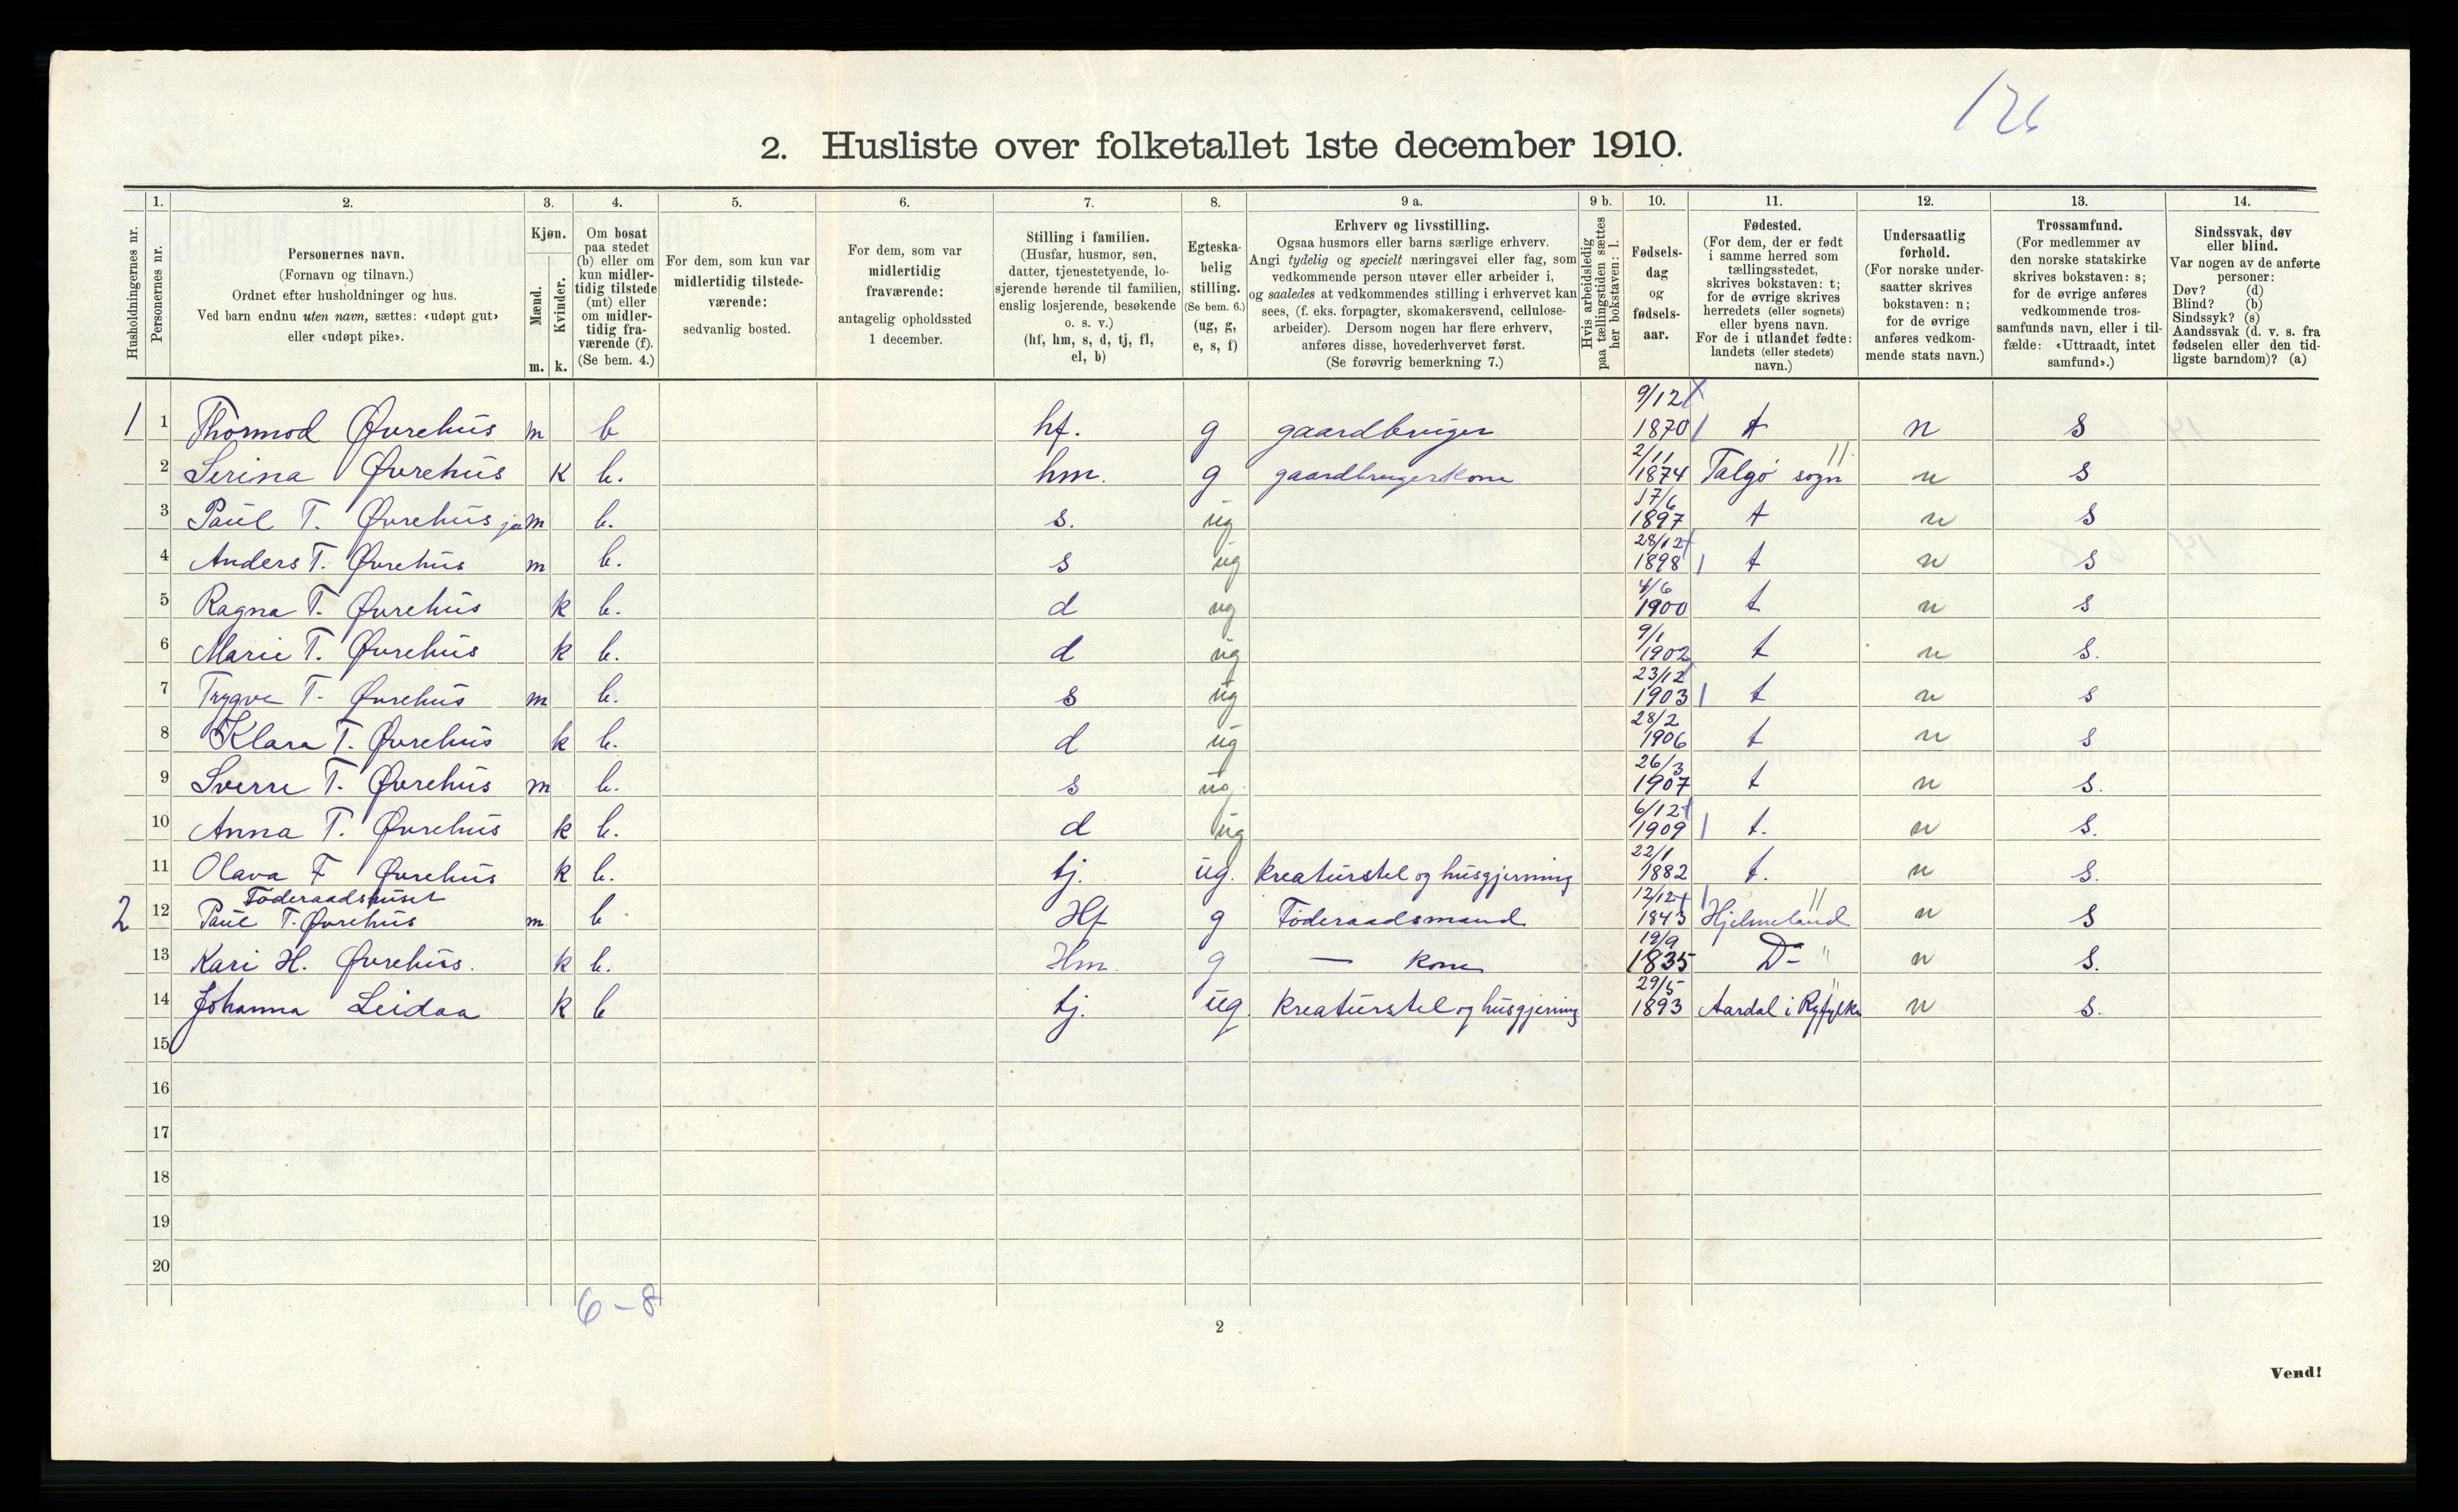 126
2. Husliste over folketallet 1ste december 1910.
Husholdningernes nr.
1.
Personernes nr.
2.
Personernes navn.
(Fornavn og tilnavn.)
Ordnet efter husholdninger og hus.
Ved barn endnu uten navn, sættes: «udøpt gut»
eller «udøpt pike».
3.
Kjøn.
Mænd.
Kvinder.
m. k.
4.
Om bosat
paa stedet
(b) eller om
kun midler-
tidig tilstede
(mt) eller
om midler-
tidig fra-
værende (f).
(Se bem. 4.)
5.
For dem, som kun var
midlertidig tilstede-
værende:
sedvanlig bosted.
6.
For dem, som var
midlertidig
fraværende:
antagelig opholdssted
1 december.
7.
Stilling i familien.
(Husfar, husmor, søn,
datter, tjenestetyende, lo-
sjerende hørende til familien,
enslig losjerende, besøkende
o. s. v.)
(hf, hm, s, d, tj, fl,
el, b)
8.
Egteska-
belig
stilling.
(Se bem. 6.)
(ug, g,
e, s, f)
9 a.
Erhverv og livsstilling.
Ogsaa husmors eller barns særlige erhverv.
Angi tydelig og specielt næringsvei eller fag, som
vedkommende person utøver eller arbeider i,
og saaledes at vedkommendes stilling i erhvervet kan
sees, (f. eks. forpagter, skomakersvend, cellulose-
arbeider). Dersom nogen har flere erhverv,
anføres disse, hovederhvervet først.
(Se forøvrig bemerkning 7.)
9 b.
Hvis arbeidsledig
paa tællingstiden sættes
her bokstaven: l.
10.
Fødsels-
dag
og
fødsels-
aar.
11.
Fødested.
(For dem, der er født
i samme herred som
tællingsstedet,
skrives bokstaven: t;
for de øvrige skrives
herredets (eller sognets)
eller byens navn.
For de i utlandet fødte:
landets (eller stedets)
navn.)
12.
Undersaatlig
forhold.
(For norske under-
saatter skrives
bokstaven: n;
for de øvrige
anføres vedkom-
mende stats navn.)
13.
Trossamfund.
(For medlemmer av
den norske statskirke
skrives bokstaven: s;
for de øvrige anføres
vedkommende tros-
samfunds navn, eller i til-
fælde: «Uttraadt, intet
samfund».)
14.
Sindssvak, døv
eller blind.
Var nogen av de anførte
personer:
Døv? (d)
Blind? (b)
Sindssyk? (s)
Aandssvak (d. v. s. fra
fødselen eller den tid-
ligste barndom)? (a)
1 1 Thormod Øvrehus m b hf. g gaardbruger 9/12 1870 t n s
2 Serina Øvrehus k b. hm. g gaardbrugerkone 2/11 1874 Talgø sogn n s
3 Paul T. Øvrehus m b. s. ug 17/6 1897 t n s
4 Anders T. Øvrehus m b. s ug 28/12 1898 t n s
5 Ragna T. Øvrehus k b. d ug 4/6 1900 t n s
6 Marie T. Øvrehus k b. d ug 9/1 1902 t n s.
7 Trygve T. Øvrehus m b. s ug 23/12 1903 t n s
8 Klara T. Øvrehus k b. d ug 28/2 1906 t n s
9 Sverre T. Øvrehus m b. s ug 26/3 1907 t n s.
10 Anna T. Øvrehus k b. d ug 6/12 1909 t. n s.
11 Olava F Øvrehus k b. tj. ug. kreaturstel og husgjerning 22/1 1882 t. n s.
Føderaadshuset
2 12 Paul T. Øvrehus m b Hf g Føderaadsmand 12/12 1843 Hjelmeland n s
13 Kari H. Øvrehus. k b. Hm. g — kone 19/9 1835 Do n s.
14 Johanna Leidaa k b tj. ug. kreaturstel og husgjerning 29/5 1893 Aardal i Ryfylke n s.
15
16
17
18
19
20
6-8
2
Vend!